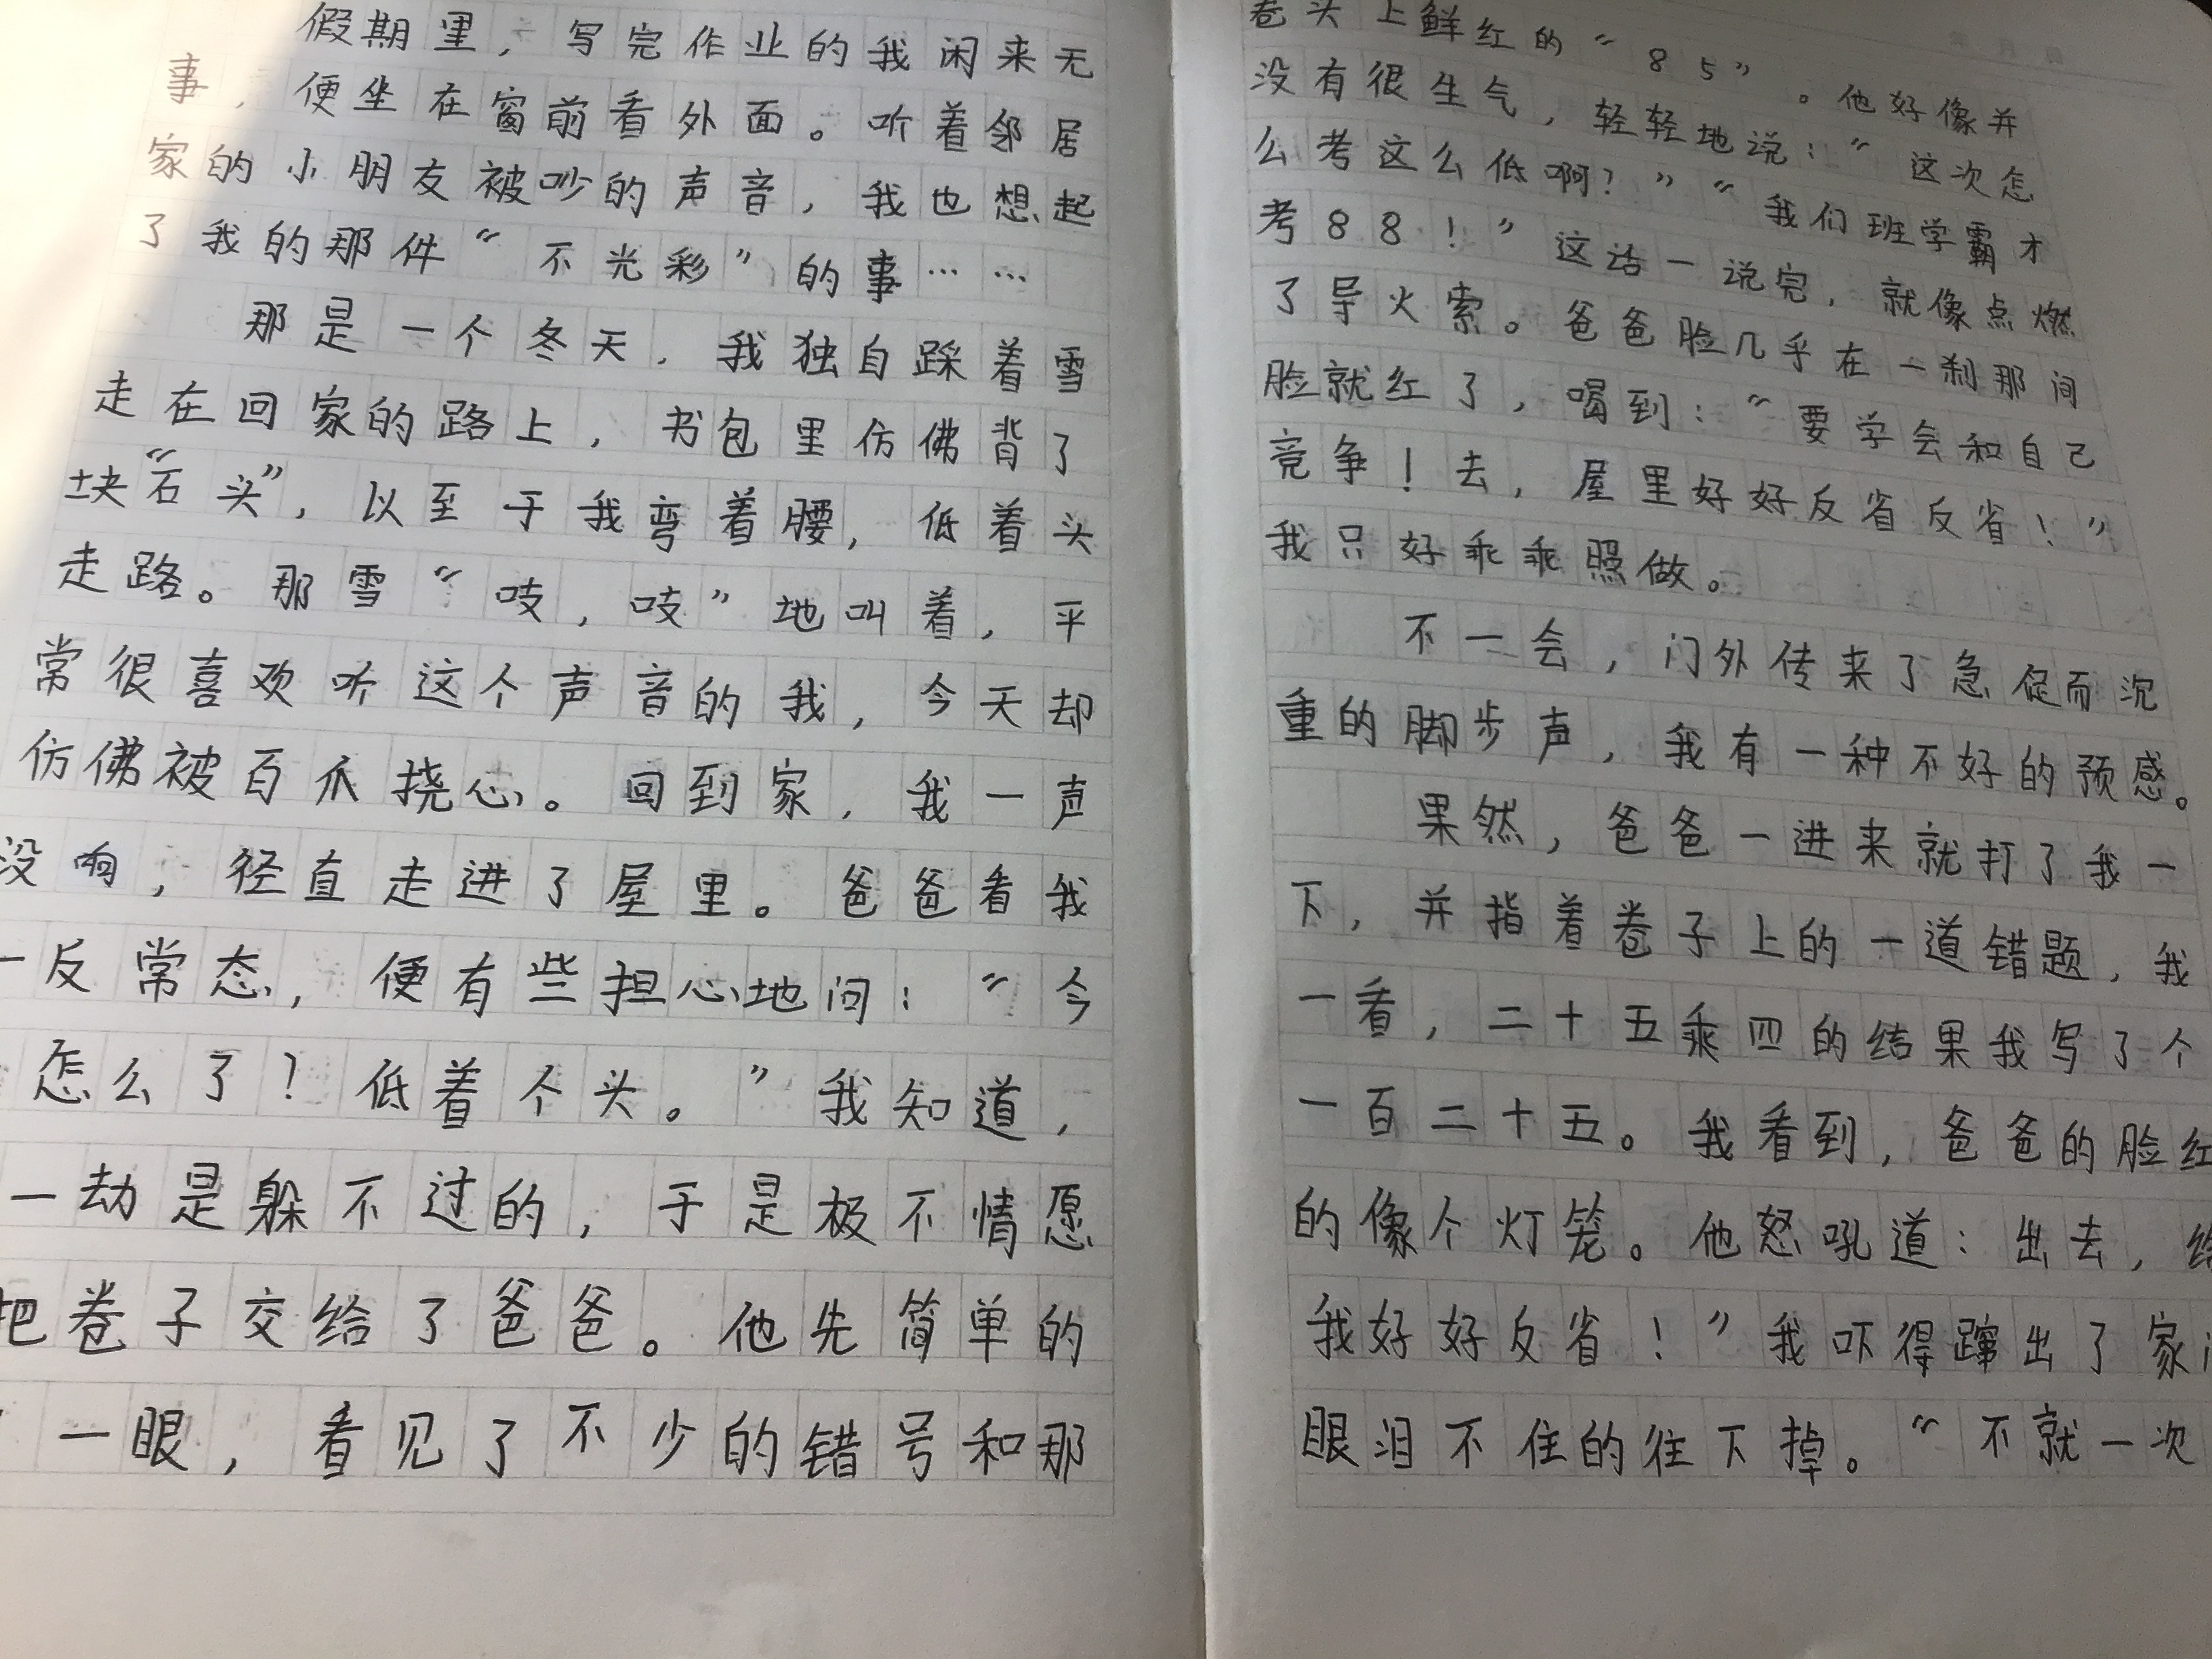 假期里，写完作业的我闲来无
事，便坐在窗前看外面。听着邻居
家的小朋友被吵的声音，我也想起
了我的那件“不光彩”的事……
那是一个冬天，我独自踩着雪
走在回家的路上，书包里仿佛背了
块“石头”，以至于我弯着腰，低着头
走路。那雪“吱，吱”地叫着，平
常很喜欢听这个声音的我，今天却
仿佛被百爪挠心。回到家，我一声
没响，径直走进了屋里。爸爸看我
一反常态，便有些担心地问：“今
怎么了？低着个头。”我知道，
一劫是躲不过的，于是极不情愿
把卷子交给了爸爸。他先简单的
一眼，看见了不少的错号和那
卷头上鲜红的“85”。他好像并
没有很生气，轻轻地说：“这次怎
么考这么低啊？”“我们班学霸才
考88！”这话一说完，就像点燃
了导火索。爸爸脸几乎在一刹那间
脸就红了，喝到：“要学会和自己
竞争！去，屋里好好反省反省！”
我只好乖乖照做。
不一会，门外传来了急促而沉
重的脚步声，我有一种不好的预感。
果然，爸爸一进来就打了我一
下，并指着卷子上的一道错题，我
一看，二十五乘四的结果我写了个
一百二十五。我看到，爸爸的脸红
的像个灯笼。他怒吼道：出去，给
我好好反省！”我吓得蹿出了家
眼泪不住的往下掉。“不就一次